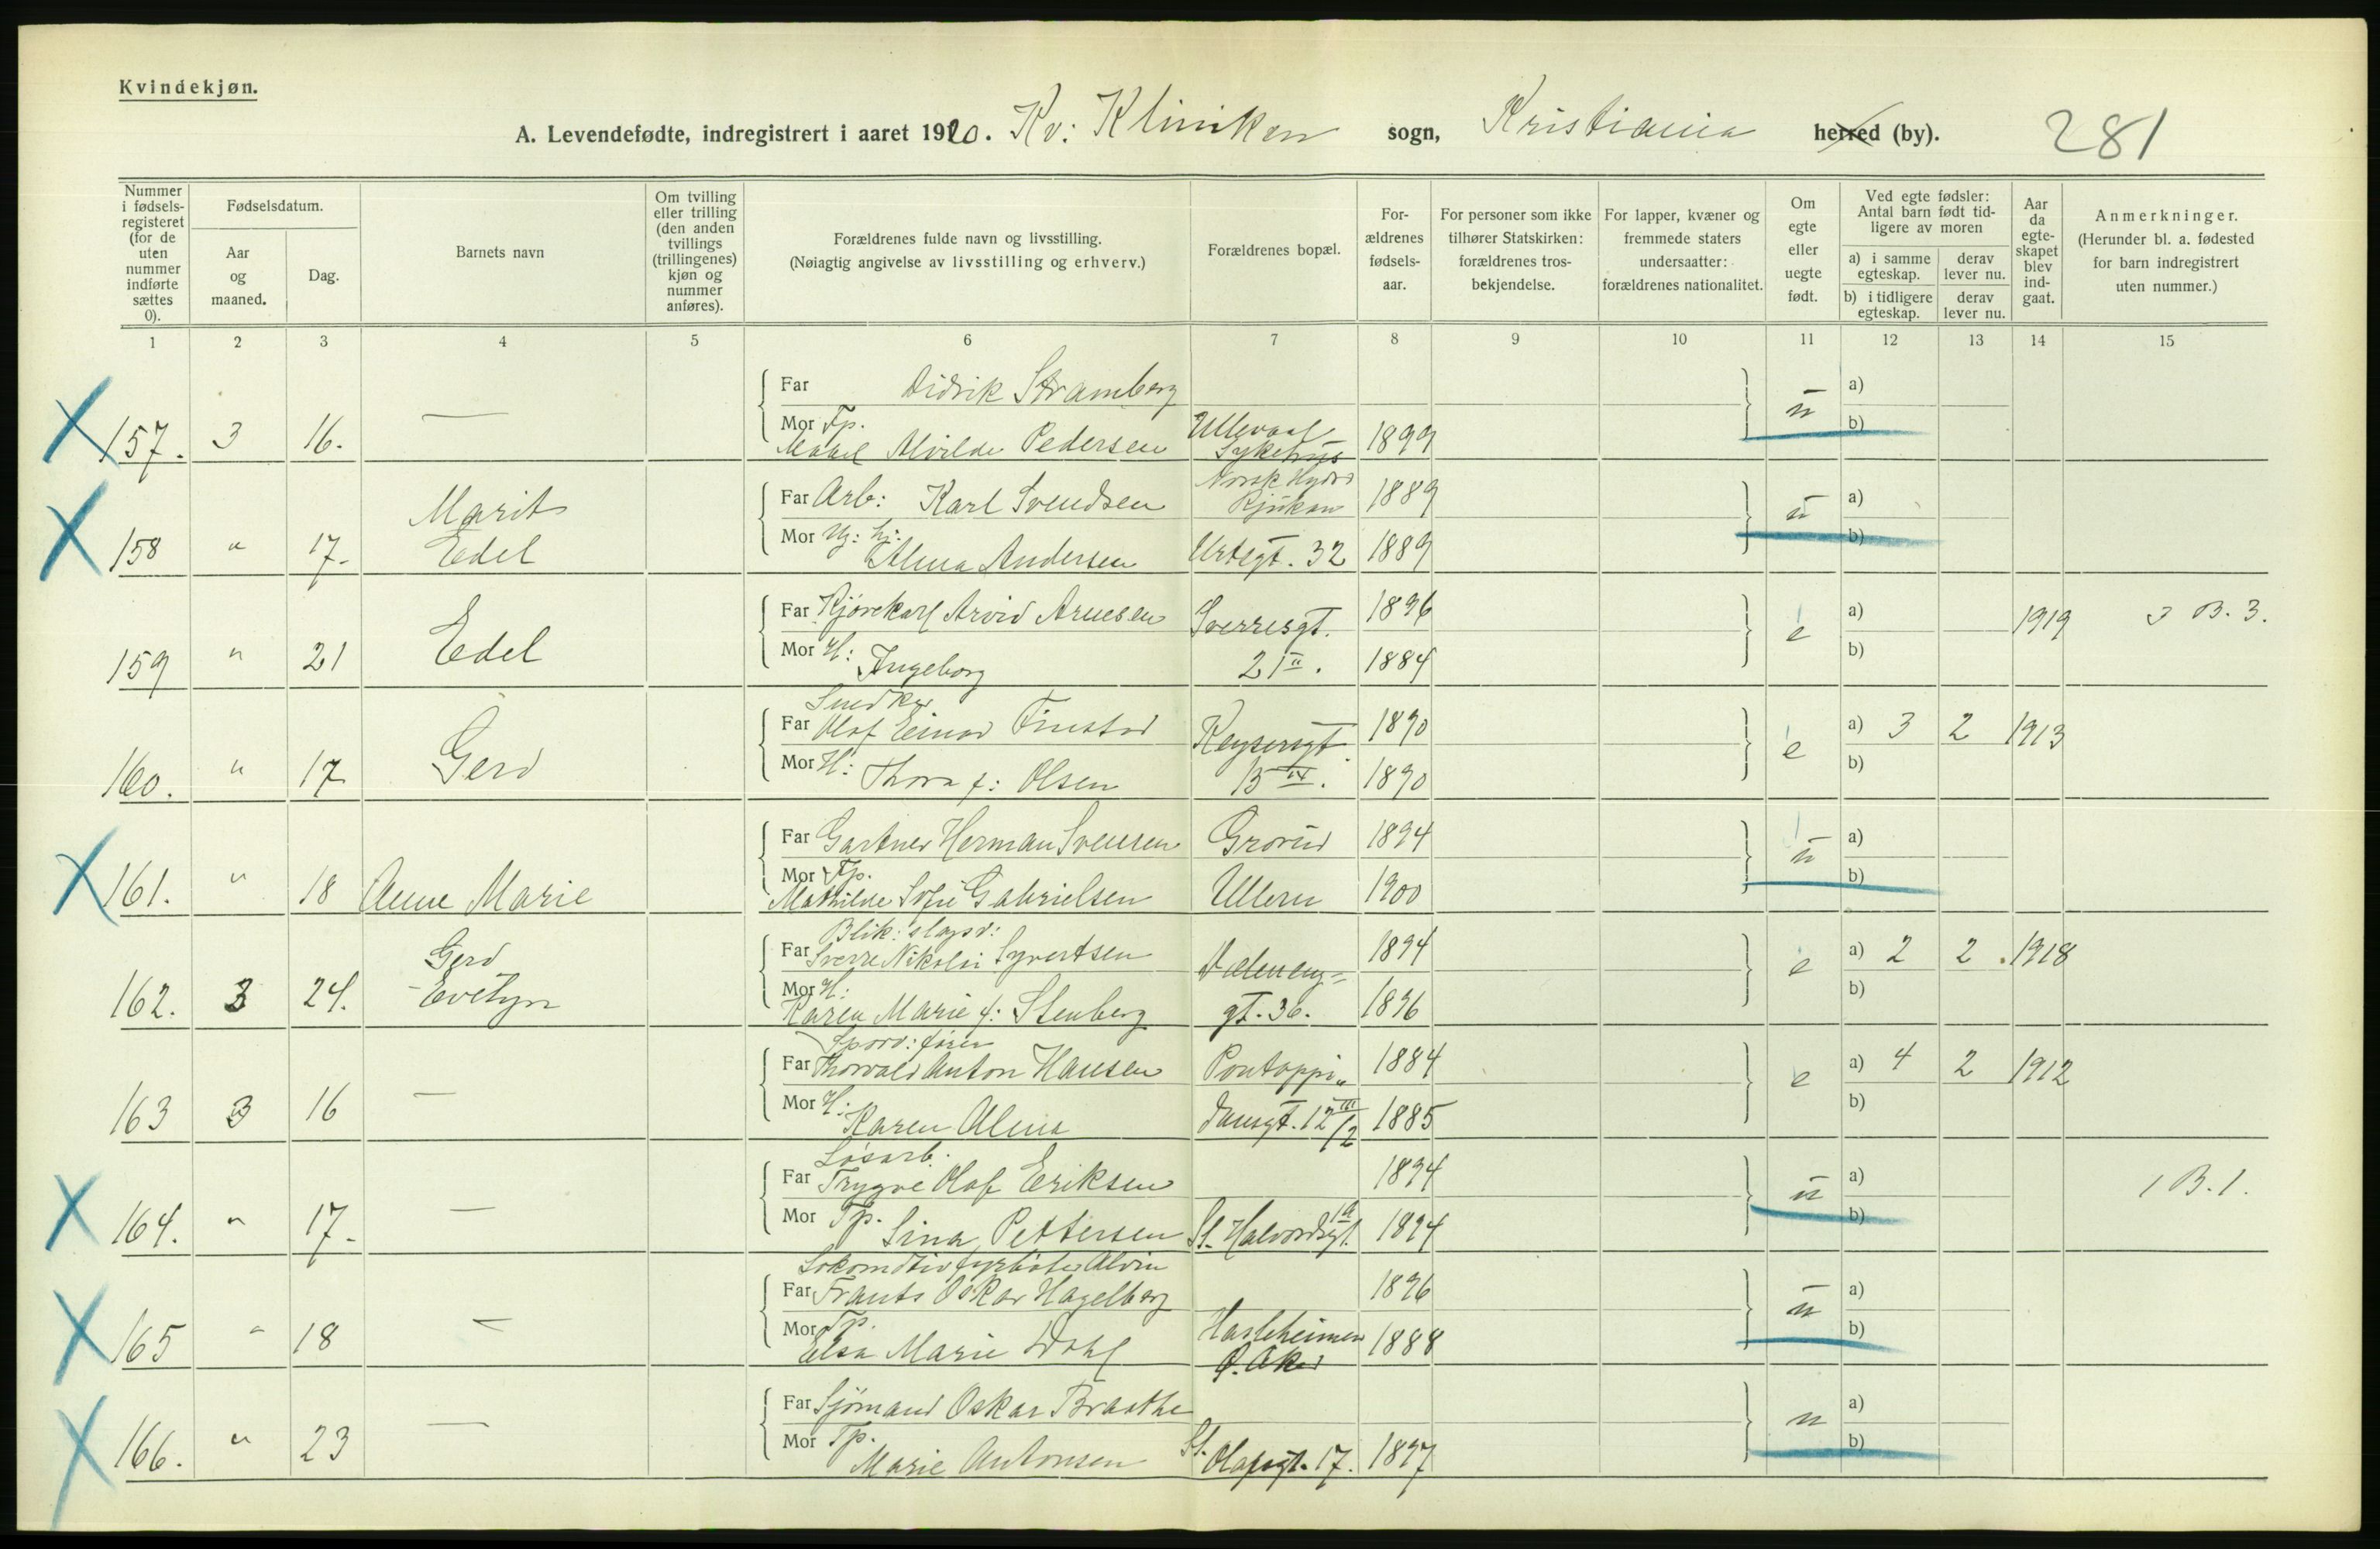 Kvindekjøn.
A. Levendefødte, indregistrert i aaret 1920. Kv: Kliniken sogn, Kristiania herred (by). 281
Nummer i fødsels-registeret (for de uten nummer indførte sættes 0).
Fødselsdatum.
Aar og maaned.
Dag.
Barnets navn
Om tvilling eller trilling (den anden tvillings (trillingenes) kjøn og nummer anføres).
Forældrenes fulde navn og livsstilling.
(Nøiagtig angivelse av livsstilling og erhverv.)
Forældrenes bopæl.
For-ældrenes fødsels-aar.
For personer som ikke tilhører Statskirken: forældrenes tros-bekjendelse.
For lapper, kvæner og fremmede staters undersaatter: forældrenes nationalitet.
Om egte eller uegte født.
Ved egte fødsler: Antal barn født tid-ligere av moren
a) i samme egteskap.
derav lever nu.
b) i tidligere egteskap.
derav lever nu.
Aar da egte-skapet blev ind-gaat.
Anmerkninger.
(Herunder bl. a. fødested for barn indregistrert uten nummer.)
1 2 3 4 5 6 7 8 9 10 11 12 13 14 15
Far Didrik Stramberg u a)
157. 3 16. — Mor Tp. Alvilde Pedersen Ullevaal Sykehus 1899 b)
Marit Far Arb: Karl Svendsen Norsk Hydro Rjukan 1889 u a)
158 " 17. Edel Mor Alma Andersen Urtegt. 32 1889 b)
Edel Far Kjørekarl Arvid Arnesen Sverresgt. 1896 e a) 1919 3 B. 3.
159 " 21 Mor H: Ingeborg 21 II. 1884 b)
Snedker
Gerd Far Olaf Einar Finstad Keysersgt. 1890 e a) 3 2 1913
160. " 17 Mor H: Thora f: Olsen 1890 b)
Far Gartner Herman Svensen Grorud 1894 u a)
161. " 18 Anne Marie Mor Tp. Mathilde Sofie Gabrielsen Ullern 1900 b)
Blik:slagsv:
Gerd Far Sverre Nikolai Syvertsen 1894 e a) 2 2 1918
162. 3 24. Evelyn Mor H: Karen Marie f: Stenberg gt. 36. 1896 b)
Sporv:fører
Far Thorvald Anton Hansen Pontoppi" 1884 e a) 4 2 1912
163 3 16 — Mor H: Karen Alma dansgt. 12 III/2 1885 b)
Løsarb.
Far Trygve Olaf Eriksen 1894 u a) 1 B. 1.
164. " 17. — Mor Tp. Lina Pettersen St. Halvardsgt. 19 1894 b)
Lokomotivfyrbøter Alvin
Far Frants Oskar Hagelberg 1896 u a)
165 " 18 — Mor Tp. Elsa Marie Dahl Hasleheimen Ø. Aker 1888 b)
Far Sjømand Oskar Braathe u a)
166. " 23 — Mor Tp. Marie Antonsen St. Olafsgt. 17. 1897 b)